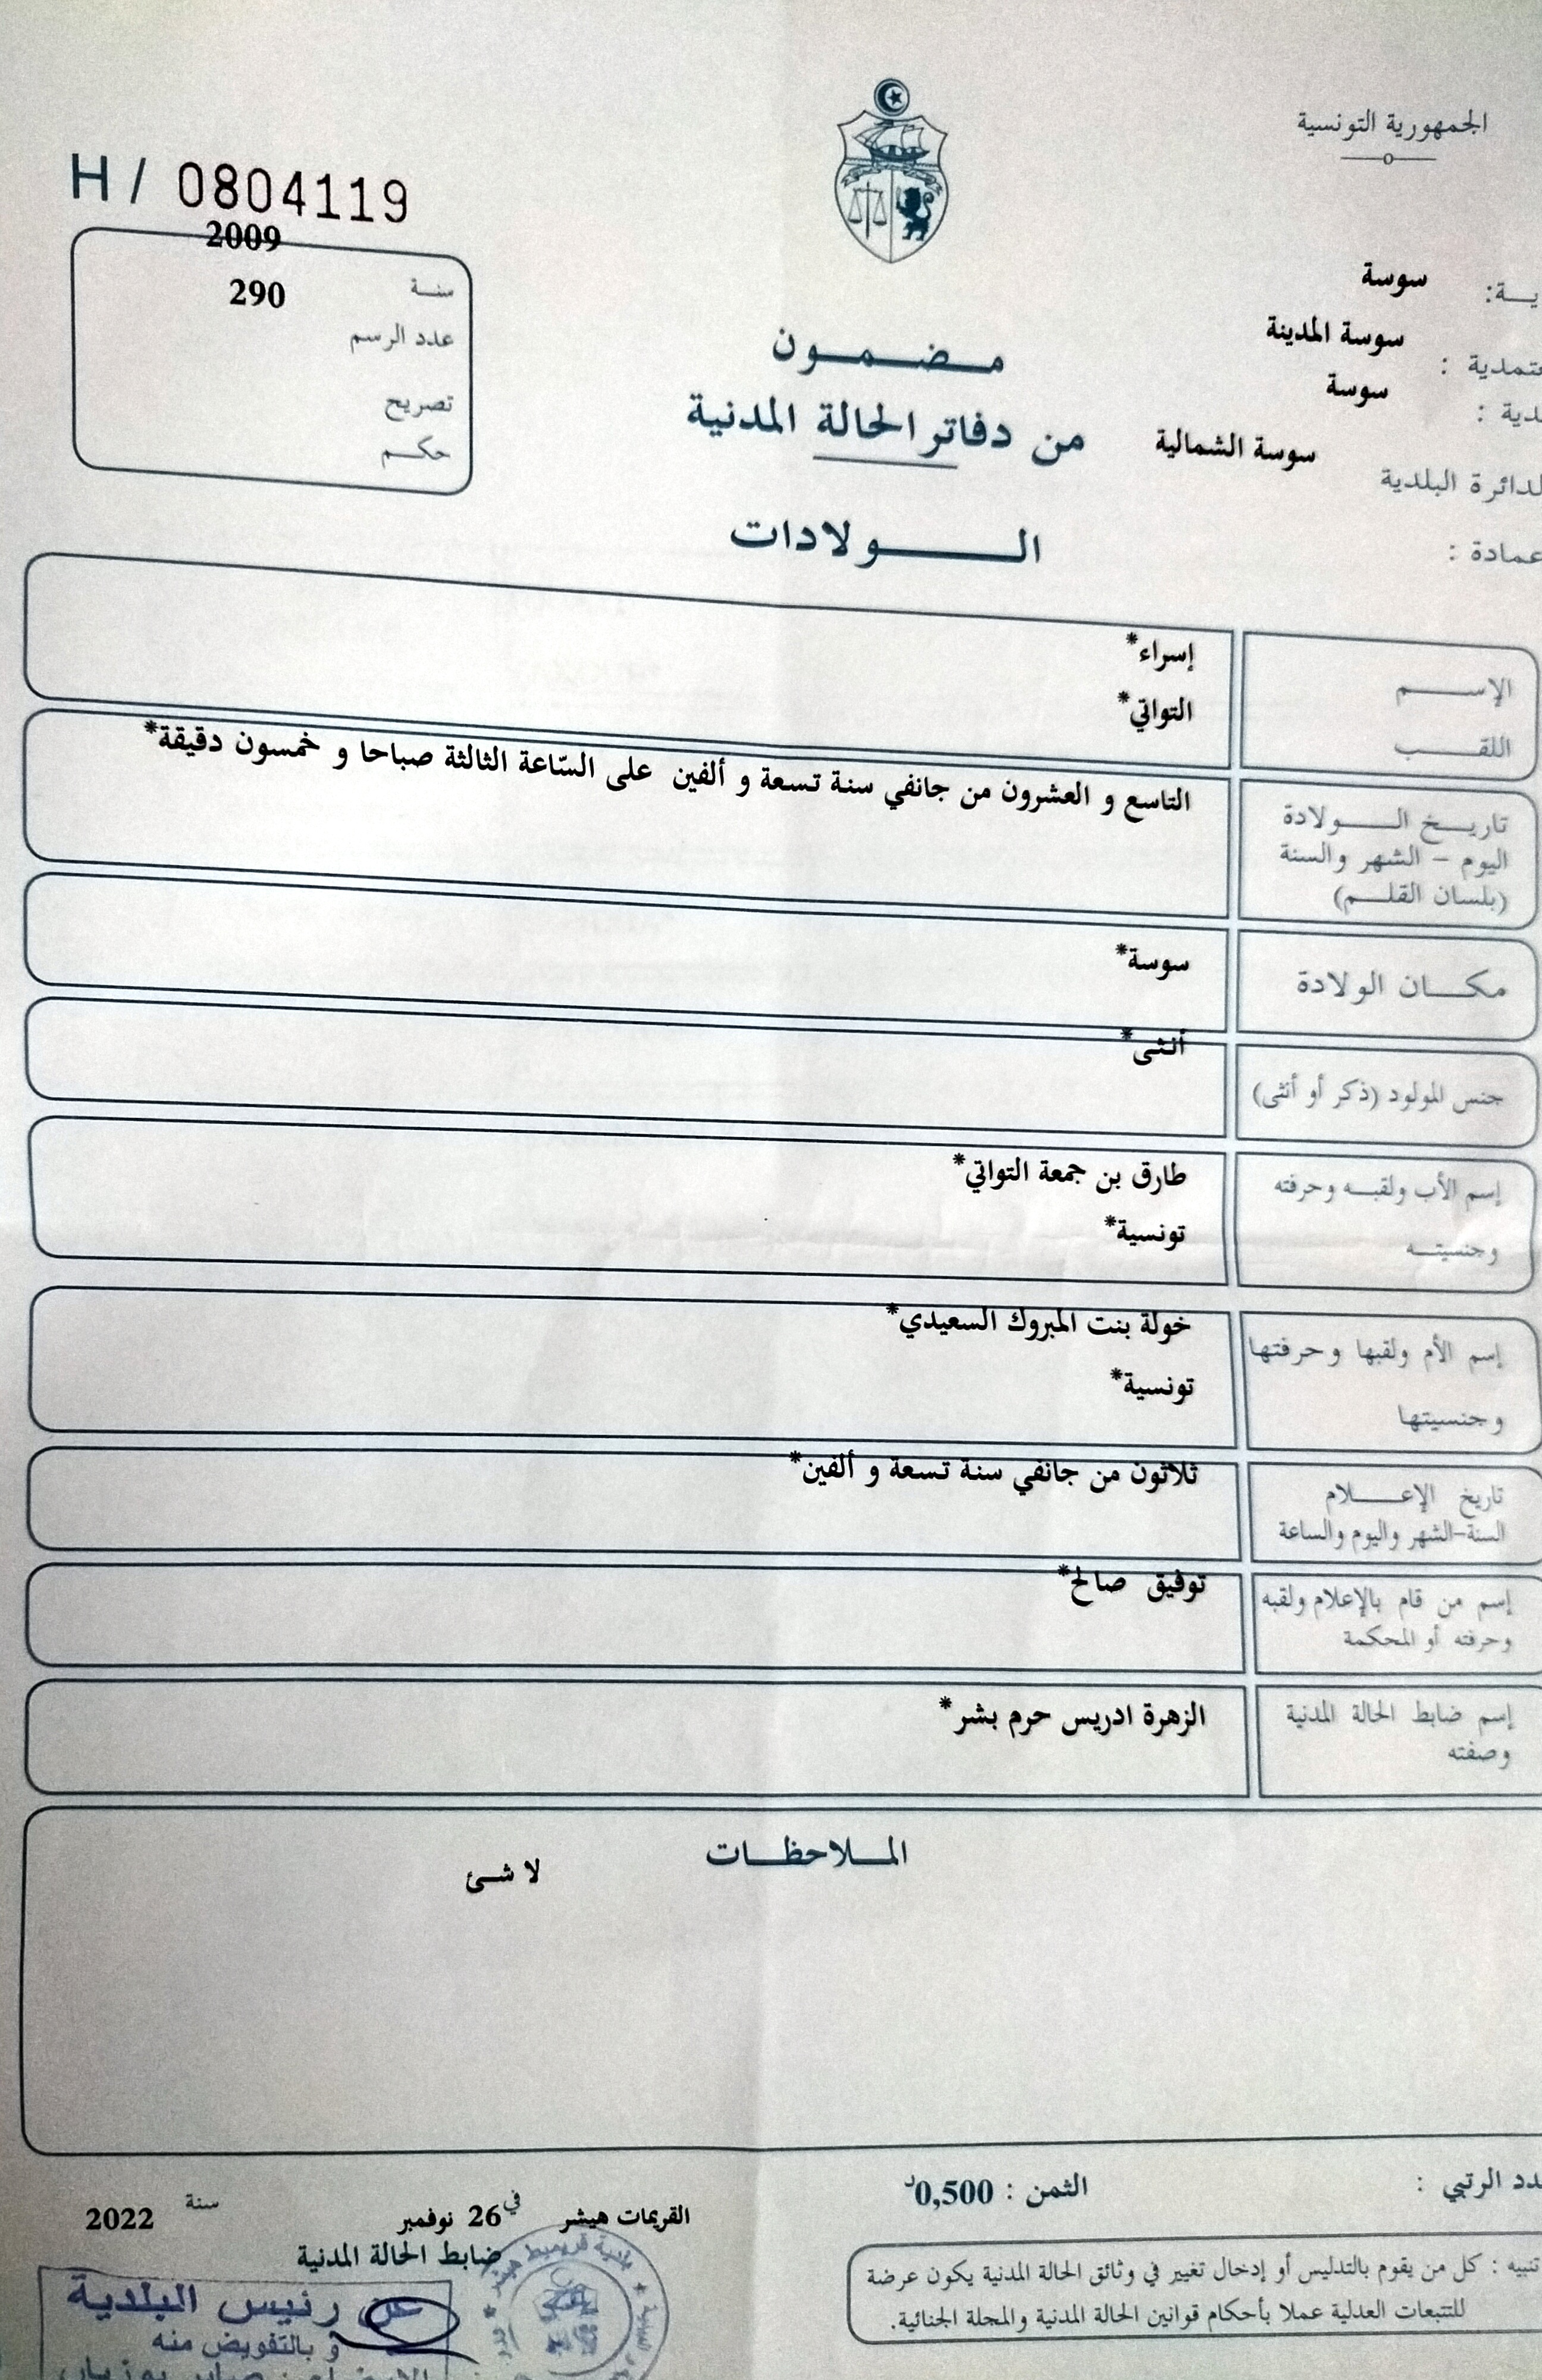 الجمهورية التونسية
H / 0804119
2009
سنة
290
عدد الرسم
تصريح
حكم
سوسة
سوسة المدينة
سوسة
سوسة الشمالية
الدائرة البلدية
عمادة :
مضمون
من دفاتر الحالة المدنية
الولادات
الإسم
إسراء*
اللقب
التواتي*
تاريخ الولادة
اليوم – الشهر والسنة
(بلسان القلم)
التاسع و العشرون من جانفي سنة تسعة و ألفين على السّاعة الثالثة صباحا و خمسون دقيقة*
مكان الولادة
سوسة*
جنس المولود (ذكر أو أنثى)
أنثى*
إسم الأب ولقبه وحرفته
طارق بن جمعة التواتي*
وجنسيته
تونسية*
إسم الأم ولقبها وحرفتها
خولة بنت المبروك السعيدي*
وجنسيتها
تونسية*
تاريخ الإعلام
السنة-الشهر واليوم والساعة
ثلاثون من جانفي سنة تسعة و ألفين*
إسم من قام بالإعلام ولقبه
وحرفته أو المحكمة
توفيق صالح*
إسم ضابط الحالة المدنية
وصفته
الزهرة ادريس حرم بشر*
الملاحظات
لا شئ
الثمن : 0,500د
القريمات هيشر في 26 نوفمبر سنة 2022
ضابط الحالة المدنية
عن رئيس البلدية
و بالتفويض منه
تنبيه : كل من يقوم بالتدليس أو إدخال تغيير في وثائق الحالة المدنية يكون عرضة
للتتبعات العدلية عملا بأحكام قوانين الحالة المدنية والمجلة الجنائية.